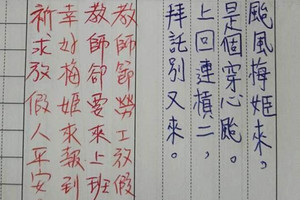 颱風梅姬來，
是個穿心颱。
上回連槓二，
拜託別又來。
教師節勞工放假
教師卻要來上班
幸好梅姬來報到
祈求放假人平安